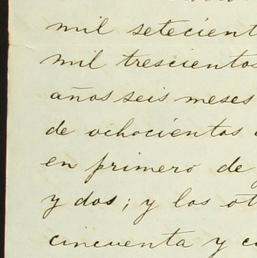 mil setecient
mil trescientos
años seis meses
de ochocientos
en primero de
y dos; y los ot
cincuenta y c